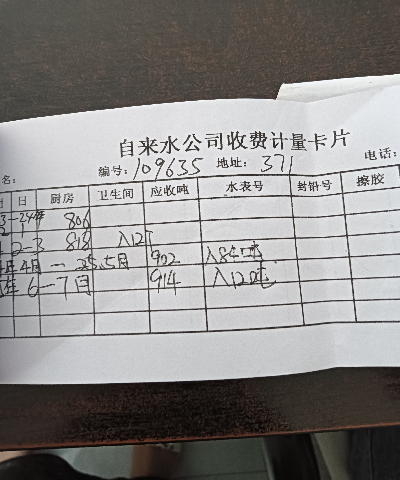 自来水公司收费计量卡片
名: 编号: 109635 地址: 371 电话:
月 日 厨房 卫生间 应收吨 水表号 封铅号 擦胶
806
2-3 818 入12T
4月 — 25.5月 902
6-7月 914 入12吨